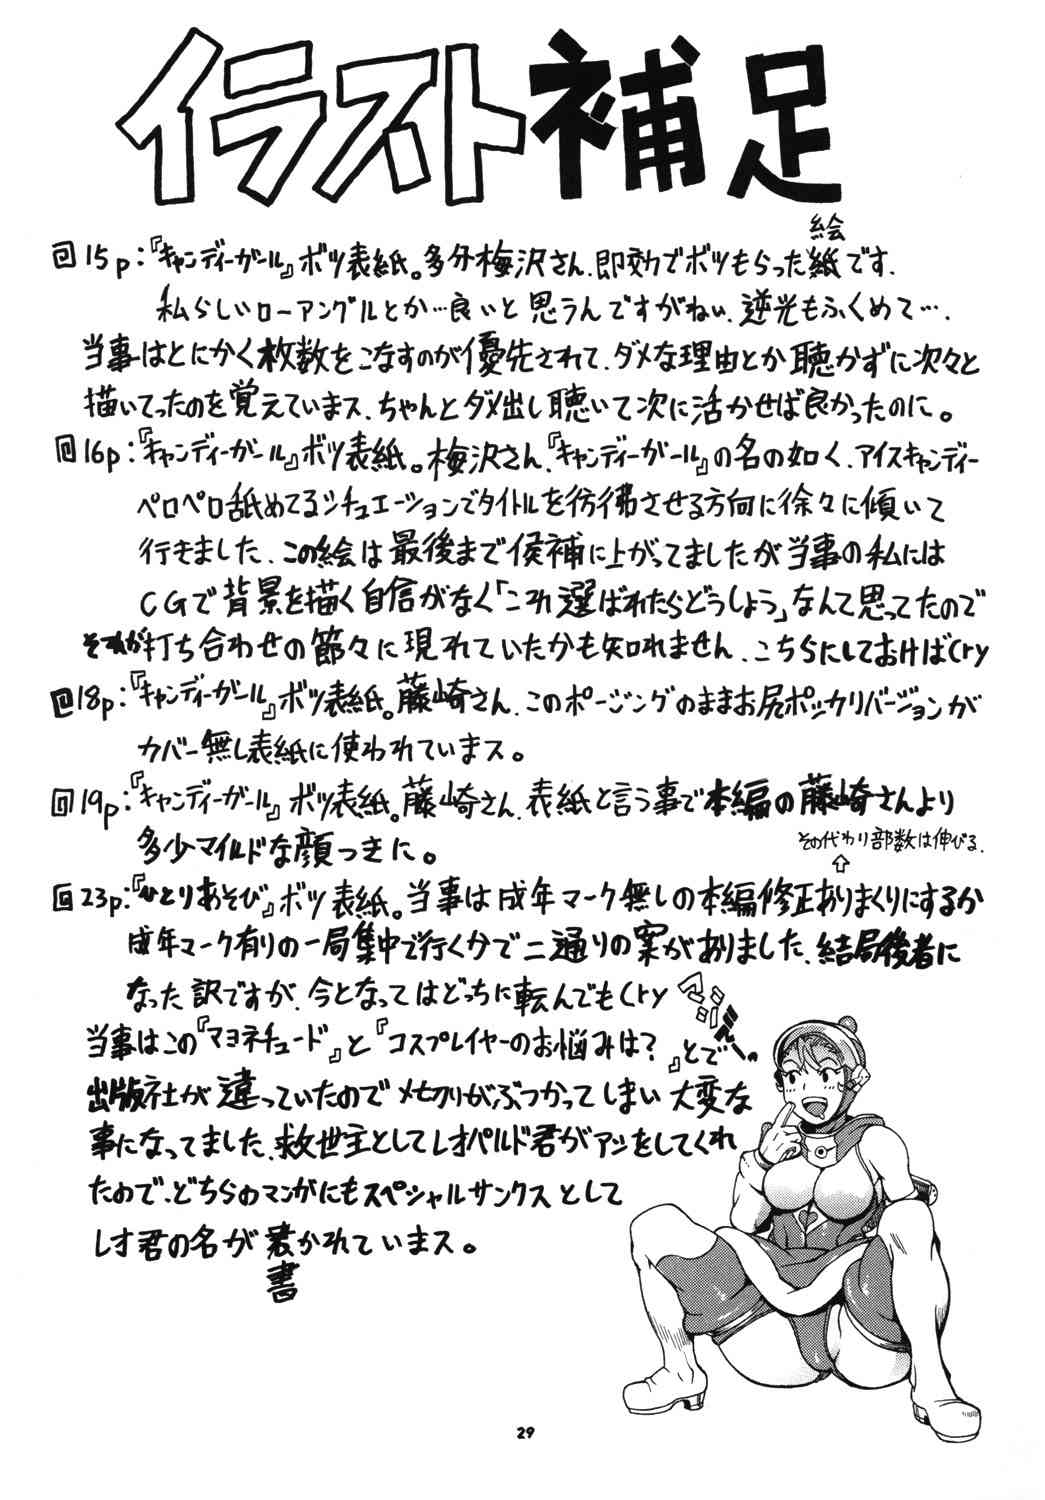 イラスト補足
回15p:『キャンディーガール』ボツ表紙。多分梅沢さん、即効でボツもらった紙です、
絵
私らしいローアングルとか…良いと思うんですがねぃ、逆光もふくめて…、
当事はとにかく枚数をこなすのが優先されて、ダメな理由とか聴かずに次々と
描いてったのを覚えていまス、ちゃんとダメ出し聴いて次に活かせば良かったのに。
回16p:『キャンディーガール』ボツ表紙。梅沢さん、『キャンディーガール』の名の如く、アイスキャンディー
ペロペロ舐めてるシチュエーションでタイトルを彷彿させる方向に徐々に傾いて
行きました、この絵は最後まで候補に上がってましたが当事の私には
CGで背景を描く自信がなく「これ選ばれたらどうしよう」なんて思ってたので
それが打ち合わせの節々に現れていたかも知れません、こちらにしておけばCry
回18p:『キャンディーガール』ボツ表紙。藤崎さん、このポージングのままお尻ポッカリバージョンが
カバー無し表紙に使われていまス。
回19p:『キャンディーガール』ボツ表紙。藤崎さん、表紙と言う事で本編の藤崎さんより
多少マイルドな顔つきに。
その代わり部数は伸びる、
⇧
回23p:『ひとりあそび』ボツ表紙。当事は成年マーク無しの本編修正ありまくりにするか
成年マーク有りの一局集中で行くかで二通りの案がありました、結局後者に
なった訳ですが、今となってはどっちに転んでもCry マジデ!!
当事はこの『マヨネチュード』と『コスプレイヤーのお悩みは?』とで
出版社が違っていたのでメ切りがぶつかってしまい大変な
事になってました、救世主としてレオパルド君がアシをしてくれ
たので、どちらのマンガにもスペシャルサンクスとして
レオ君の名が かれていまス。
書
29